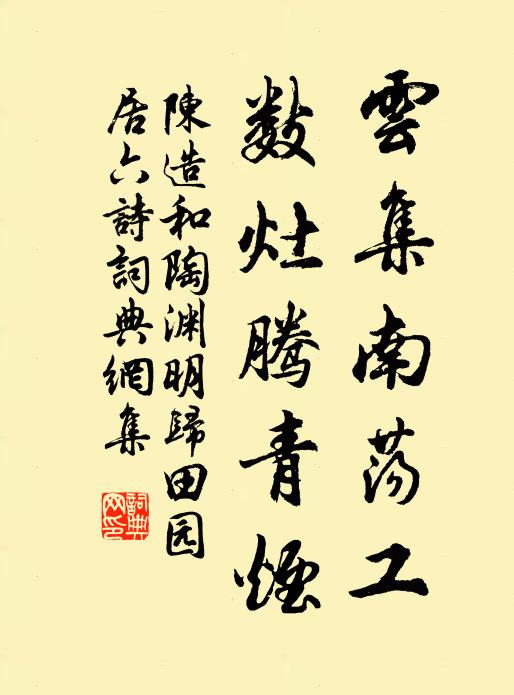 雲集南蕩工
數灶騰青煙
陳造和陶淵明歸田园
居六詩詞典網集
詞典網印